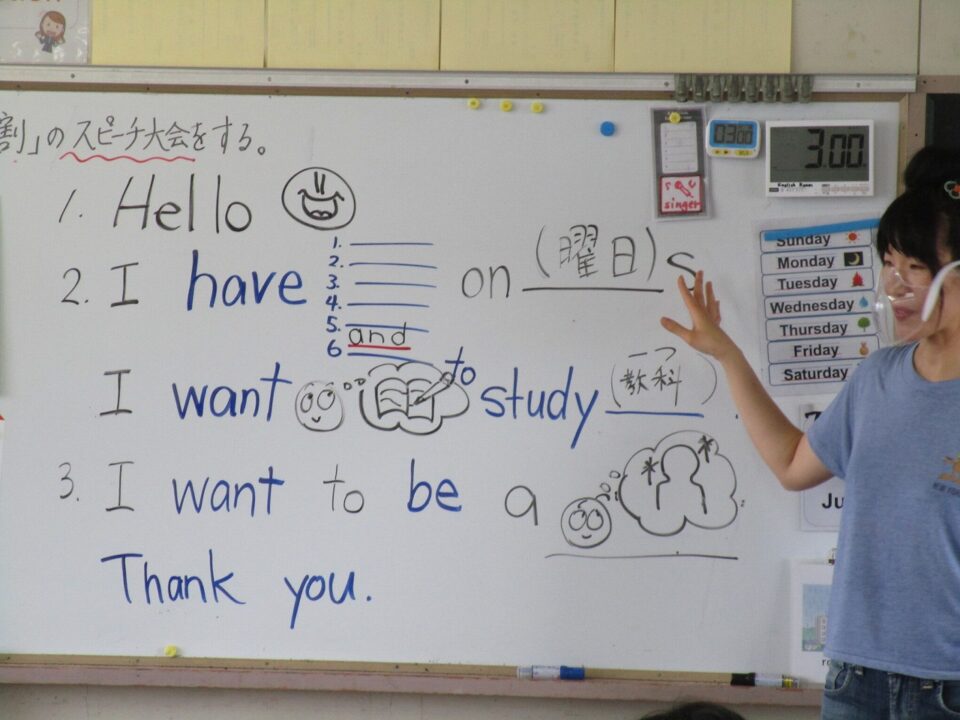 割」のスピーチ大会をする。
1. Hello
2. I have
1.
2.
3.
4.
5.
and
6
on (曜日)s
I want to study (教科)
一つ
3. I want to be a
Thank you.
singer
03:00
3:00
Sunday
Monday
Tuesday
Wednesday
Thursday
Friday
Saturday
Ju